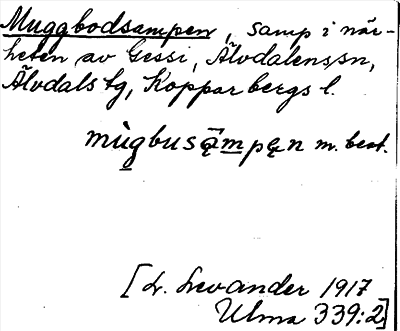 Muggbodsampen, samp i när-
heten av Gessi, Älvdalens sn,
Älvdals tg, Kopparbergs l.
m. best.
[L. Levander 1917
Ulma 339:2]